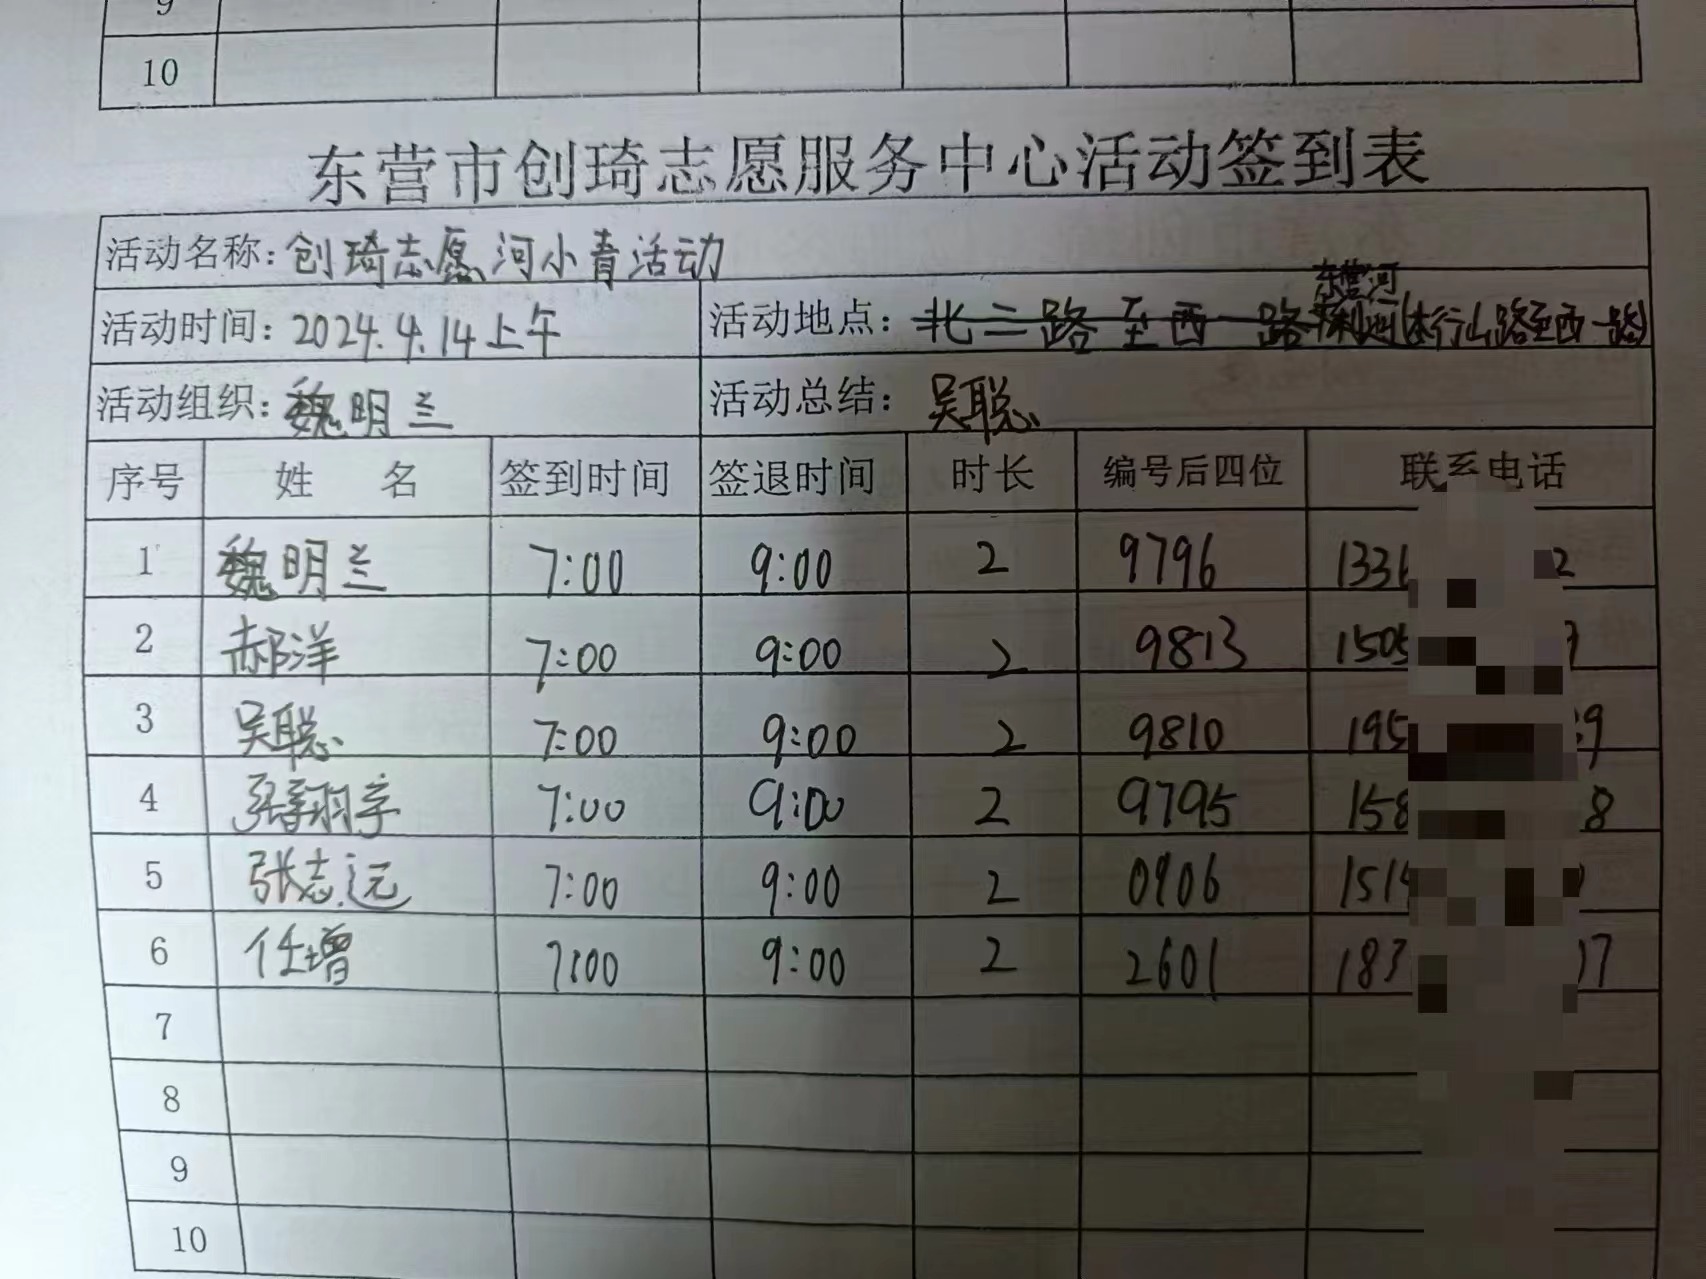 9
10
东营市创琦志愿服务中心活动签到表
活动名称: 创琦志愿河小青活动
活动时间: 2024.4.14上午 活动地点: 北二路至西一路 东营河 (太行山路至西一路)
活动组织: 魏明兰 活动总结: 吴聪
序号 姓 名 签到时间 签退时间 时长 编号后四位 联系电话
1 魏明兰 7:00 9:00 2 9796 1336 2
2 郝洋 7:00 9:00 2 9813 1505
3 吴聪 7:00 9:00 2 9810 195 9
4 张翔宇 7:00 9:00 2 9795 158 8
5 张志远 7:00 9:00 2 0906 151
6 任增 7:00 9:00 2 2601 183 17
7
8
9
10